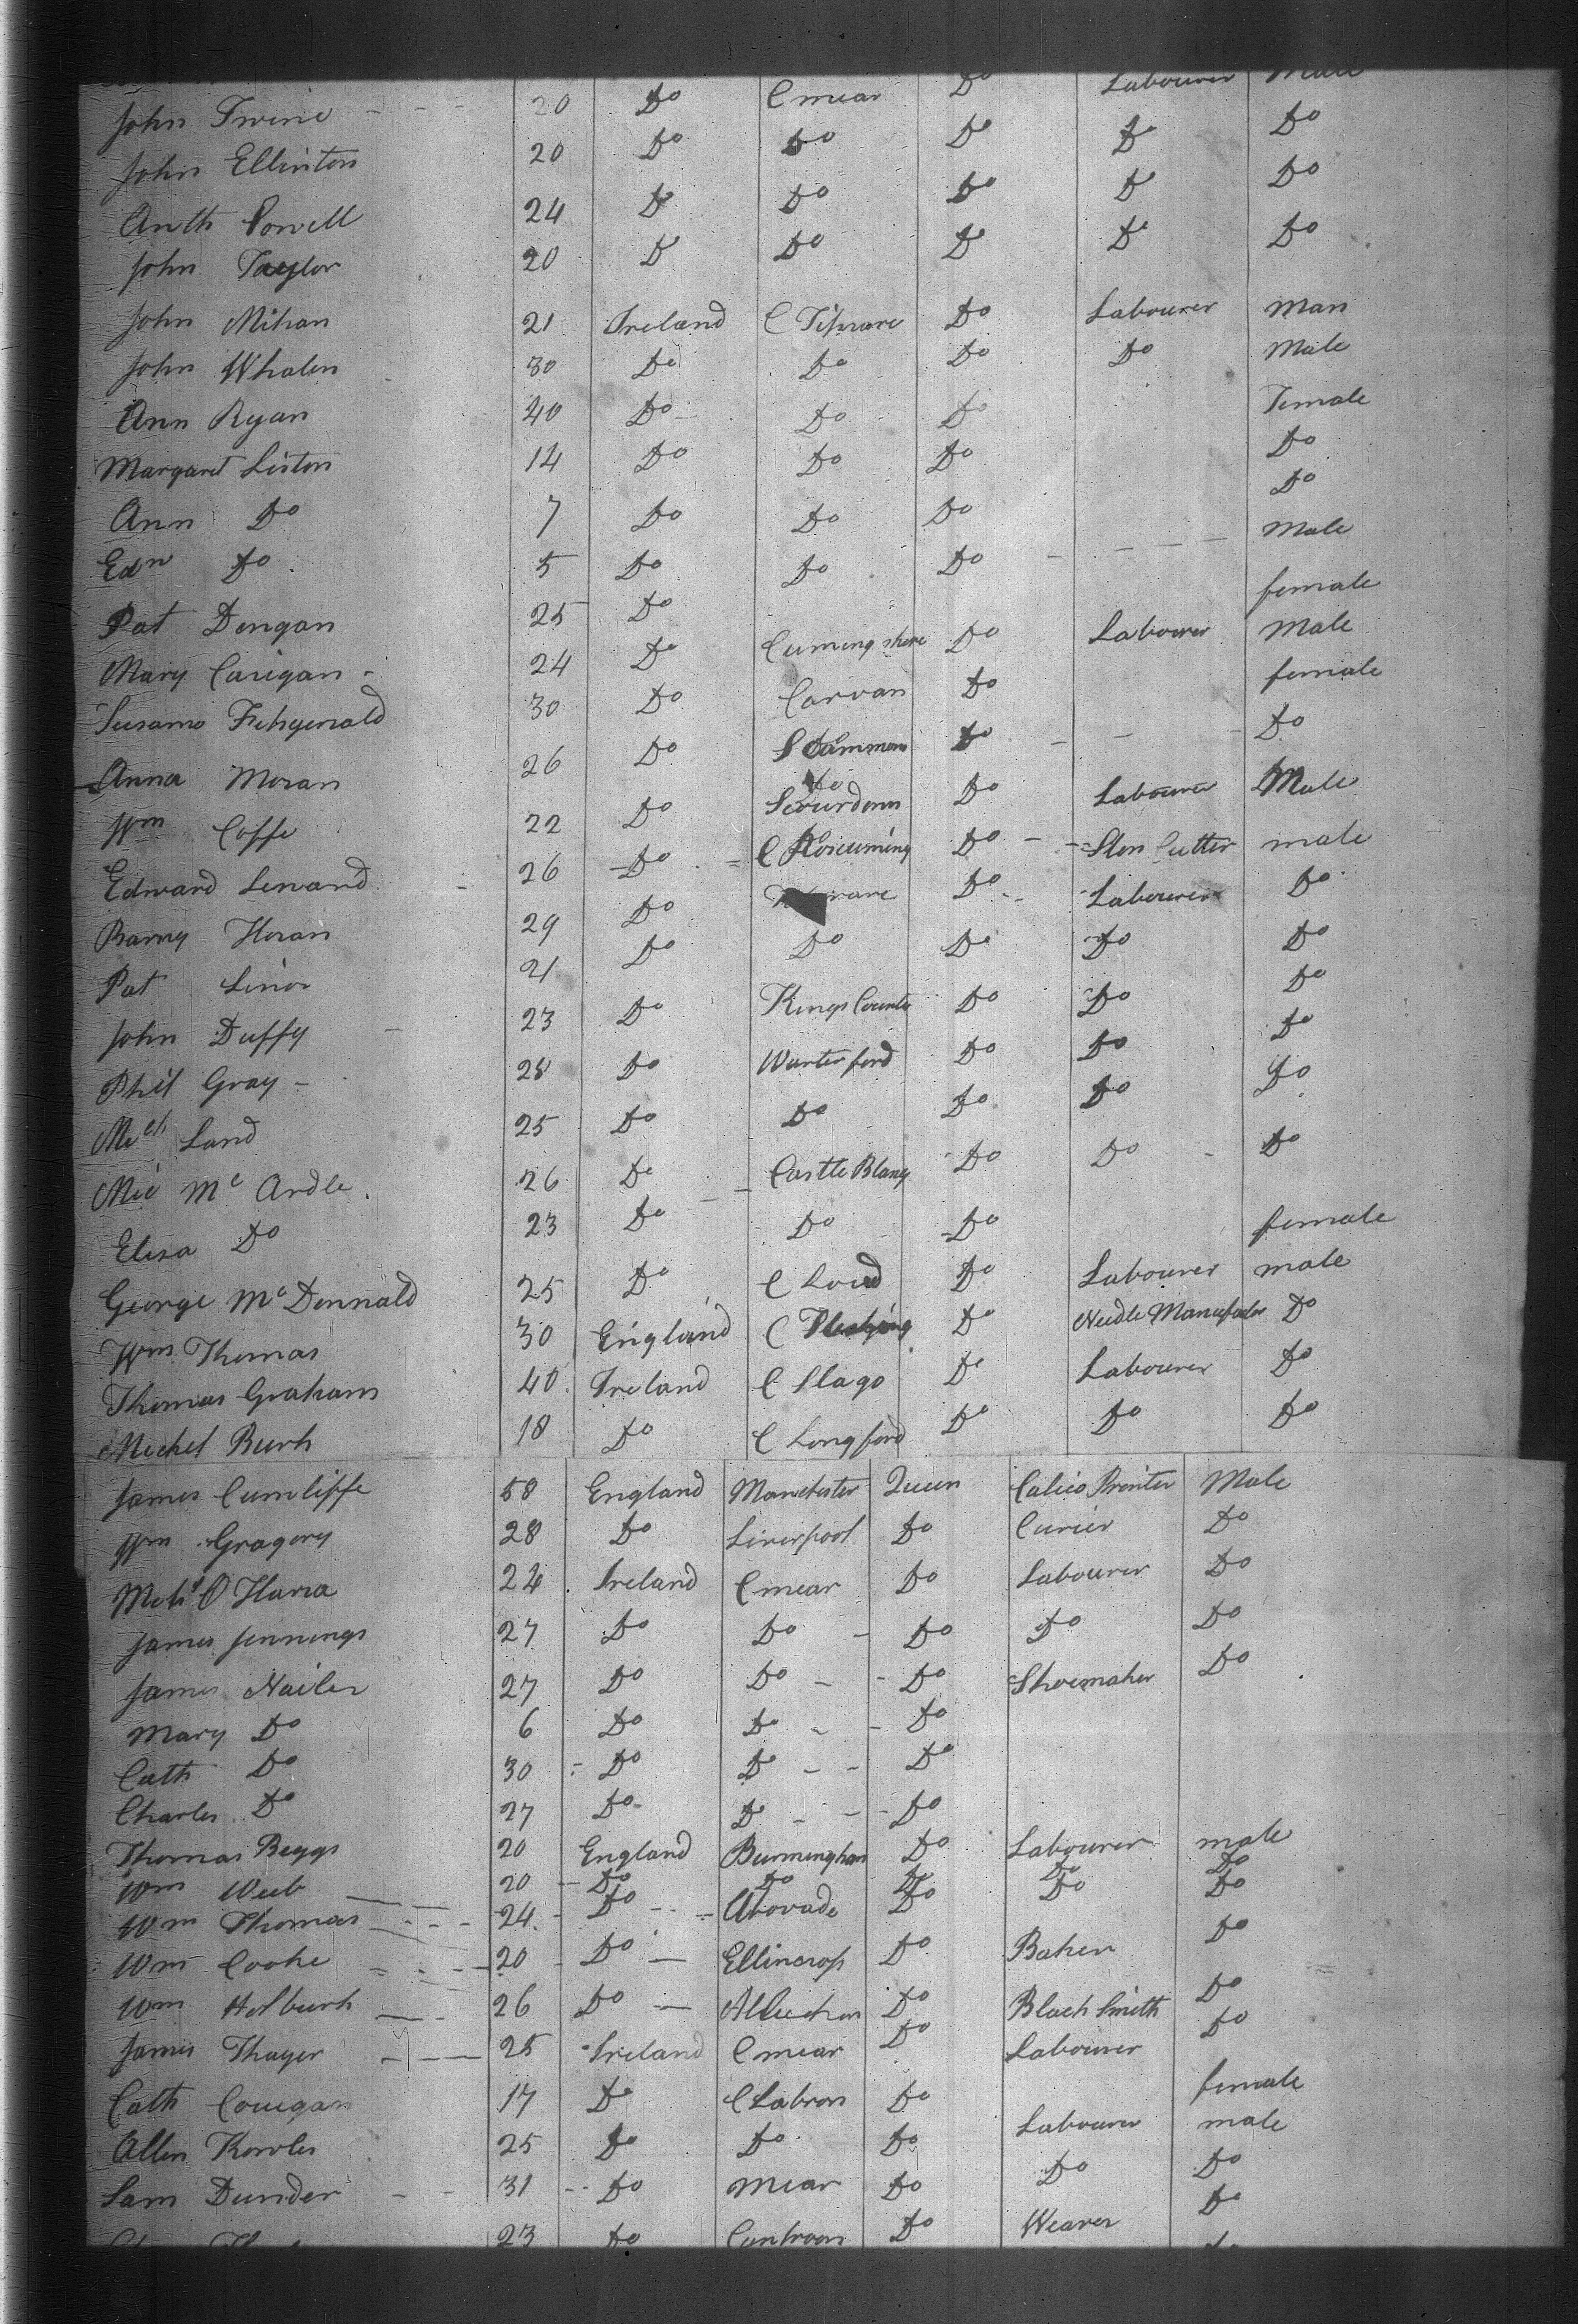 John Irvine 20 Do C mear Do Labourer Male
John Ellinton 20 Do Do Do Do Do
Anth Powell 24 Do Do Do Do Do
John Taylor 20 Do Do Do Do Do
John Mihan 21 Ireland C Tiprare Do Labourer Man
John Whalen 30 Do Do Do Do Male
Ann Ryan 40 Do Do Do Female
Margaret Liston 14 Do Do Do Do
Ann Do 7 Do Do Do Do
Edn Do 5 Do Do Do Male
Pat Dengan 25 Do Cumingshire Do Labourer Male
Mary Carigan 24 Do Carvan Do female
Susamo Fitzgerald 30 Do Do
Anna Moran 26 Do
Wm Coffe 22 Do Do Labourer Male
Edward Lenard 26 Do Do Ston Cutter male
Barny Horan 29 Do Do Labourer Do
Pat Linor 21 Do Do Do Do Do
John Duffy 23 Do Kings Counte Do Do Do
Phil Gray 28 Do Warterford Do Do Do
Mich Land 25 Do Do Do Do Do
Mic Mc Ardle 26 Do Castle Blany Do Do Do
Elisa Do 23 Do Do Do female
George McDonnald 25 Do C Loud Do Labourer male
Wm Thomas 30 England C Do Needle Do
Thomas Graham 40 Ireland C Slago Do Labourer Do
Michel Burk 18 Do C Longford Do Do Do
James Cumliffe 58 England Manchester Queen Calico Printer Male
Wm Gragory 28 Do Liverpool Do Currier Do
Mich O Hara 24 Ireland C mear Do Labourer Do
James Jennings 27 Do Do Do Do Do
James Nailer 27 Do Do Do Shoemaker Do
Mary Do 6 Do Do Do
Cath Do 30 Do Do Do
Charles Do 27 Do Do Do
Thomas Beggs 20 England Burmingham Do Labourer male
Wm Weeb 20 Do Do Do Do Do
Wm Thomas 24 Do Do Do Do
Wm Cooke 20 Do Ellincrop Do Baker Do
Wm Holburk 26 Do Do Black Smith Do
James Thayer 25 Ireland C mear Do Labourer Do
Cath Corrigan 17 Do C Labron Do female
Allen Kowles 25 Do Do Do Labourer male
Sam Dunder 31 Do mear Do Do Do
23 Do Do Weaver Do